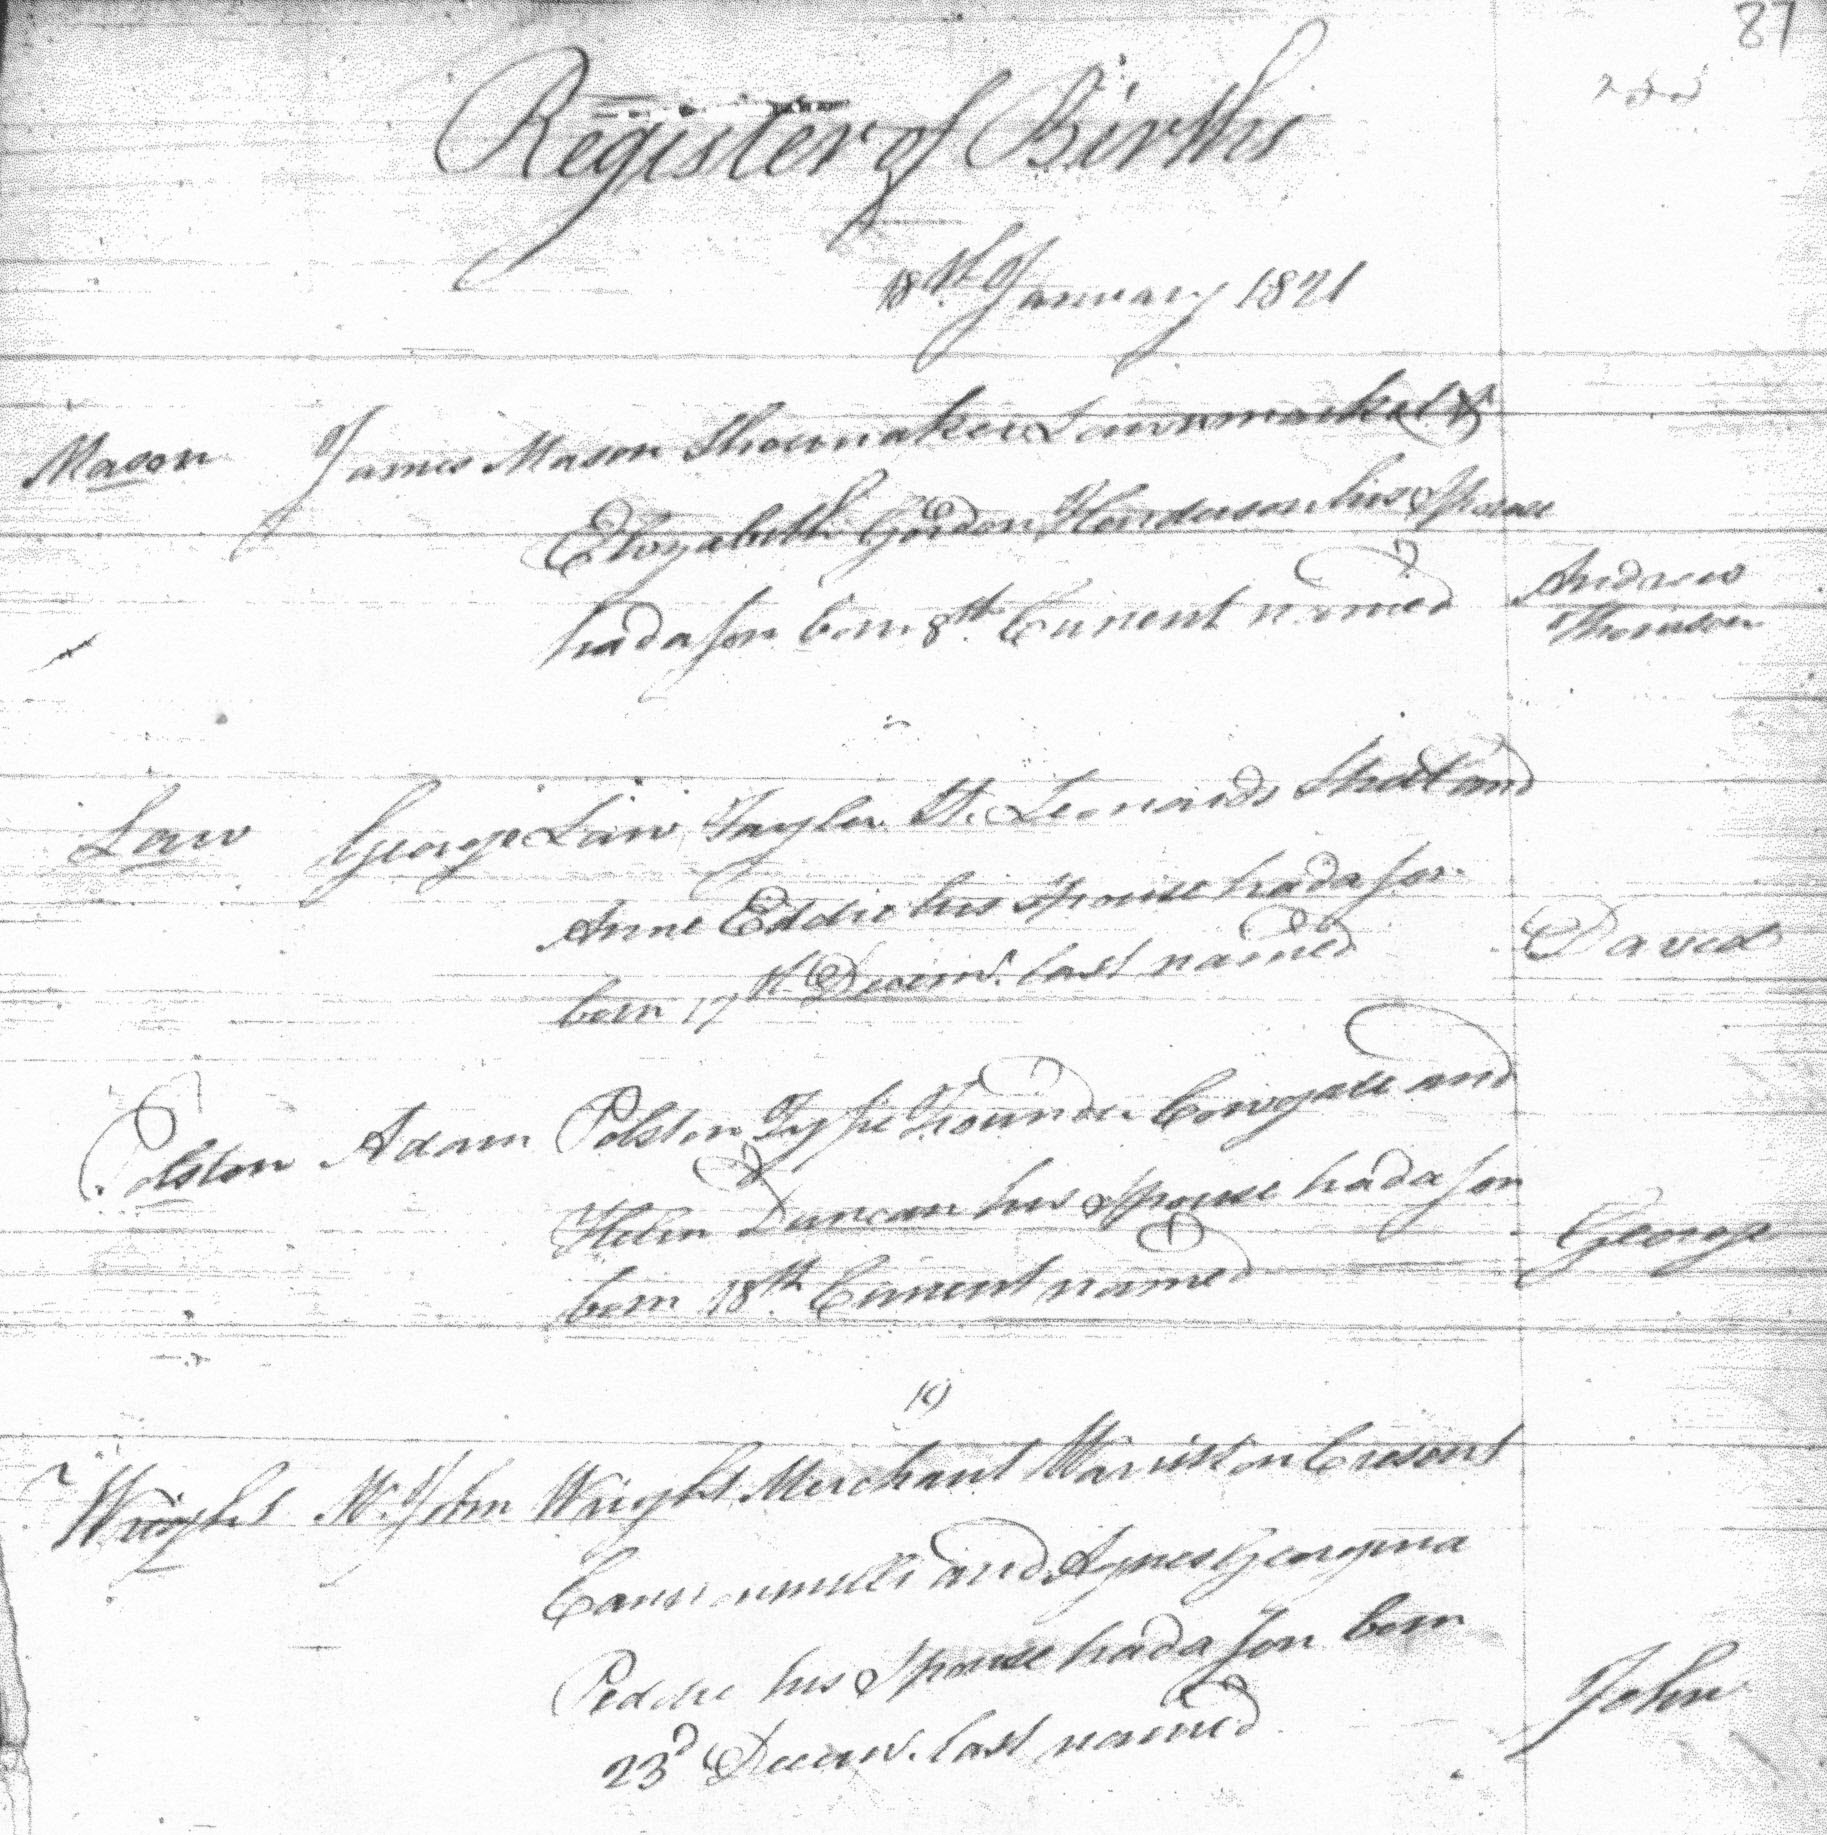 87
Register of Births
18th January 1821
Mason James Mason Shoemaker Lawnmarket &
Elizabeth Gordon Henderson his Spouse
had a Son born 8th Current named Andrew
Thomson
Law George Law Taylor St. Leonards Street and
Anne Eddie his Spouse had a Son
born 17th Decemr. last named David
Polston Adam Polston Type Founder Cowgate and
Helen Duncan his Spouse had a Son
born 18th Current named George
19
Wright Mr. John Wright Merchant Warriston Cresent
Cannonmills and Agnes Georgina
Peddie his Spouse had a Son born
23d Decemr. last named John